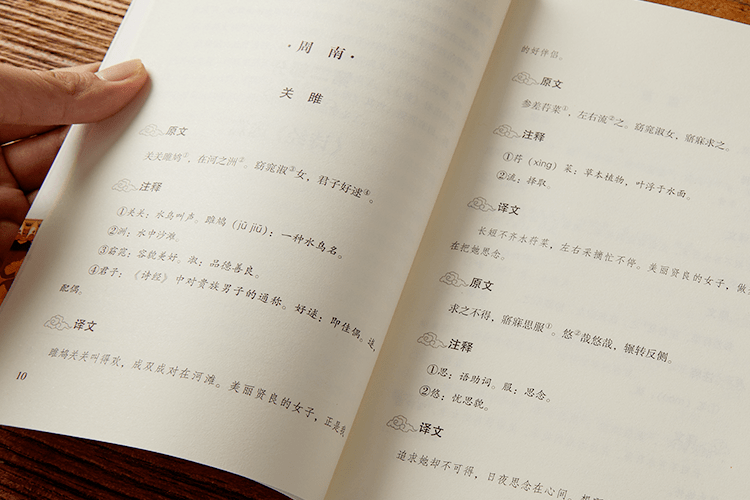 ·周 南·
关 雎
原文
关关雎鸠①，在河之洲②。窈窕淑③女，君子好逑④。
注释
①关关：水鸟叫声。雎鸠（jū jiū）：一种水鸟名。
②洲：水中沙滩。
③窈窕：容貌美好。淑：品德善良。
④君子：《诗经》中对贵族男子的通称。好逑：即佳偶。逑，
配偶。
译文
雎鸠关关叫得欢，成双成对在河滩。美丽贤良的女子，正是我
10
的好伴侣。
原文
参差荇菜①，左右流②之。窈窕淑女，寤寐求之。
注释
①荇（xìng）菜：草本植物，叶浮于水面。
②流：择取。
译文
长短不齐水荇菜，左右采摘忙不得。美丽贤良的女子，做
在把她思念。
原文
求之不得，寤寐思服①。悠②哉悠哉，辗转反侧。
注释
①思：语助词。服：思念。
②悠：忧思貌。
译文
追求她却不可得，日夜思念在心间。